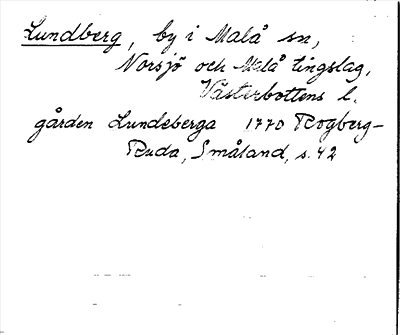 Lundberg, by i Malå sn,
Norsjö och Malå tingslag,
Västerbottens l.
gården Lundeberga 1770 Rogberg-
Ruda, Småland, s. 42